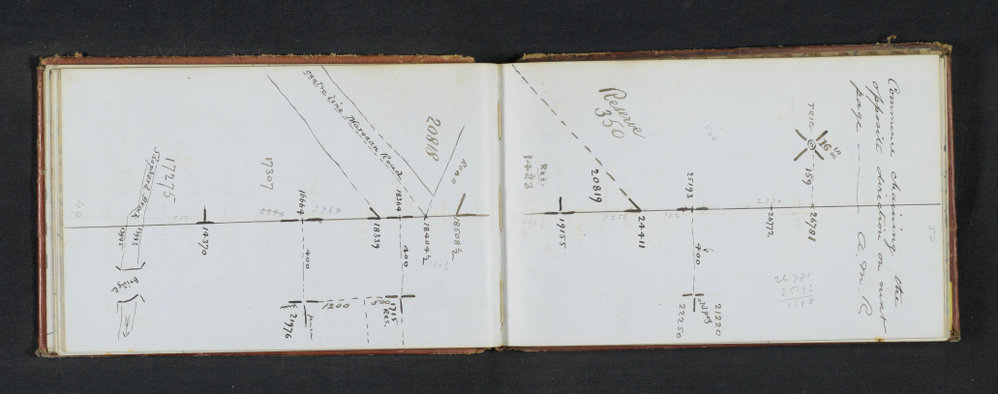 Commence chaining the
opposite direction on next
page A. M R.
50
TRIG
16
159
26781
26772
26781
25193
1588
Reserve
350
25193
400
21220
old peg
22250
24411
20819
19155
Res.
1423
Road
18508½
20818
18404½
Centre Line Maronan Road
18364
400
1715
Res.
500
18339
1200
16664
400
21976
17307
14370
17275
49
Bridge